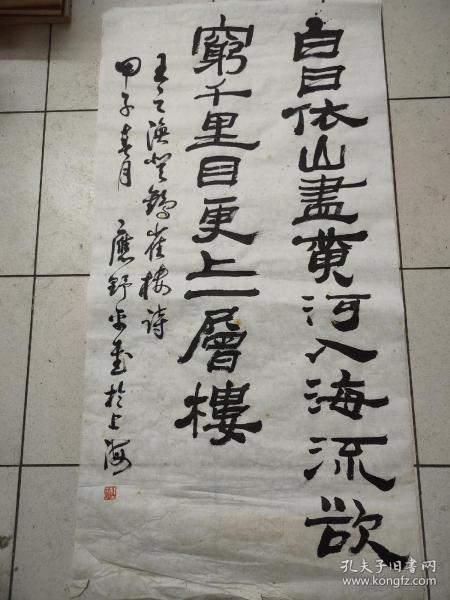 白日依山盡黄河入海流欲
窮千里目更上一層樓
王之渙登鸛雀樓詩
甲子春月 應野平書於上海
孔夫子旧书网
www.kongfz.com